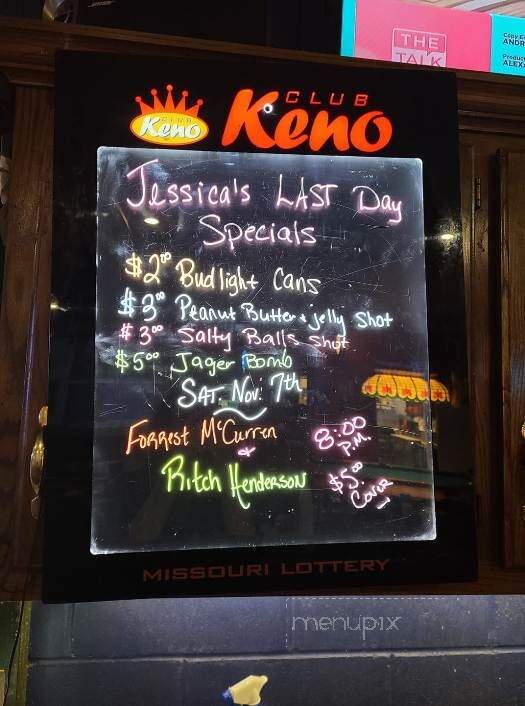 THE
TALK
CLUB
Keno
CLUB
Keno
Jessica's LAST Day
Specials
$2⁰⁰ Bud light Cans
$3⁰⁰ Peanut Butter & jelly Shot
$3⁰⁰ Salty Balls Shot
$5⁰⁰ Jager Bomb
SAT. Nov. 7th
Forrest McCurren
&
Ritch Henderson
8:00
P.M.
$5.⁰⁰
Cover
MISSOURI LOTTERY
menupix